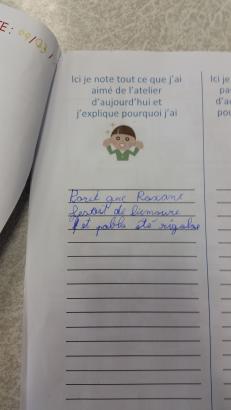 E: 09/03/
Ici je note tout ce que j'ai
aimé de l'atelier
d'aujourd'hui et
j'explique pourquoi j'ai
Ici je
pa
d'a
pou
que Roxane
de
et pablo été rigolos